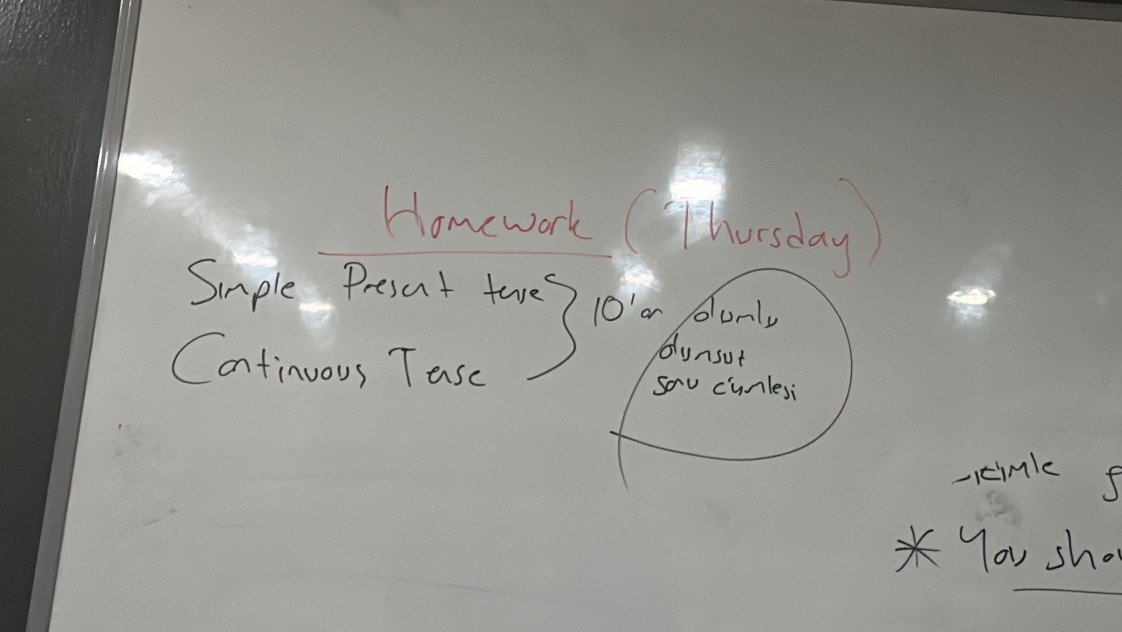 Homework (Thursday)
Simple Present tense
Continuous Tense
10'ar olumlu
olumsuz
soru cümlesi
* You sho